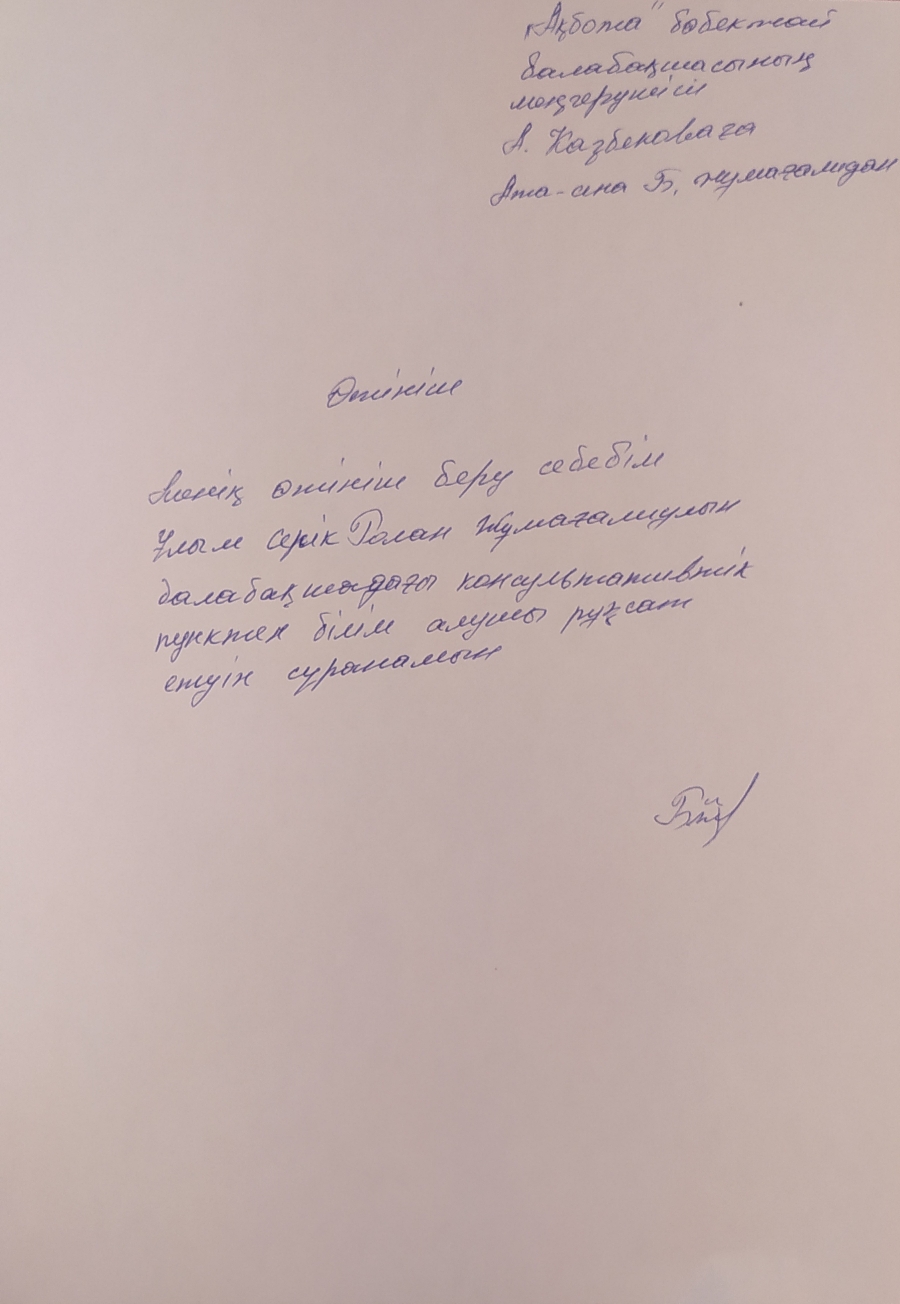 "Ақбота" бөбекжай
балабақшасының
меңгерушісі
А. Казбековаға
Ата-ана Б. Жұмағалидан
Өтініш
Менің өтініш беру себебім
Ұлым Серік Голан Жұмағалиұлын
балабақшадағы консультативтік
пунктен білім алушы рұқсат
етуін сұранамын